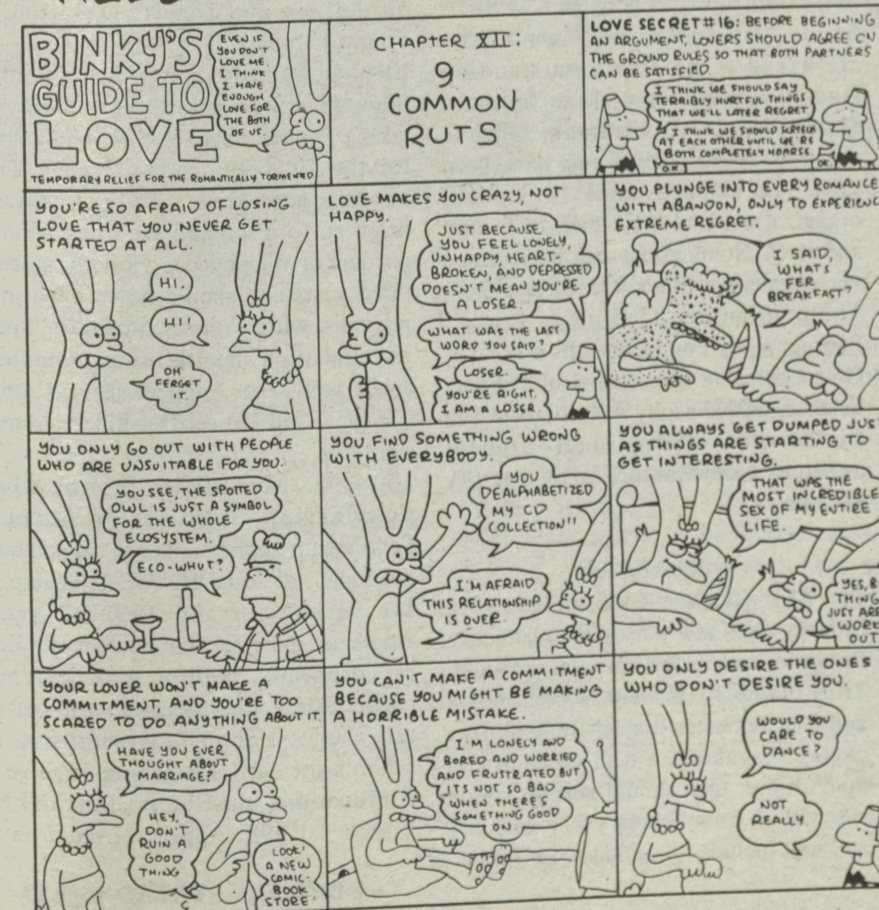 BINKY'S
GUIDE TO
LOVE
EVEN IF
YOU DON'T
LOVE ME,
I THINK
I HAVE
ENOUGH
LOVE FOR
THE BOTH
OF US.
TEMPORARY RELIEF FOR THE ROMANTICALLY TORMENTED
CHAPTER XII:
9
COMMON
RUTS
LOVE SECRET #16: BEFORE BEGINNING
AN ARGUMENT, LOVERS SHOULD AGREE ON
THE GROUND RULES SO THAT BOTH PARTNERS
CAN BE SATISFIED.
I THINK WE SHOULD SAY
TERRIBLY HURTFUL THINGS
THAT WE'LL LATER REGRET
I THINK WE SHOULD SCREECH
AT EACH OTHER UNTIL WE'RE
BOTH COMPLETELY HOARSE.
OK.
OK.
YOU'RE SO AFRAID OF LOSING
LOVE THAT YOU NEVER GET
STARTED AT ALL.
HI.
HI!
OH
FERGET
IT.
LOVE MAKES YOU CRAZY, NOT
HAPPY.
JUST BECAUSE
YOU FEEL LONELY,
UNHAPPY, HEART-
BROKEN, AND DEPRESSED
DOESN'T MEAN YOU'RE
A LOSER.
WHAT WAS THE LAST
WORD YOU SAID?
LOSER.
YOU'RE RIGHT.
I AM A LOSER.
YOU PLUNGE INTO EVERY ROMANCE
WITH ABANDON, ONLY TO EXPERIENC
EXTREME REGRET.
I SAID,
WHATS
FER
BREAKFAST?
YOU ONLY GO OUT WITH PEOPLE
WHO ARE UNSUITABLE FOR YOU.
YOU SEE, THE SPOTTED
OWL IS JUST A SYMBOL
FOR THE WHOLE
ECOSYSTEM.
ECO-WHUT?
YOU FIND SOMETHING WRONG
WITH EVERYBODY.
YOU
DEALPHABETIZED
MY CD
COLLECTION!!
I'M AFRAID
THIS RELATIONSHIP
IS OVER.
YOU ALWAYS GET DUMPED JUST
AS THINGS ARE STARTING TO
GET INTERESTING.
THAT WAS THE
MOST INCREDIBLE
SEX OF MY ENTIRE
LIFE.
YES, B
THING
JUST ARE
WORK
OUT
YOUR LOVER WON'T MAKE A
COMMITMENT, AND YOU'RE TOO
SCARED TO DO ANYTHING ABOUT IT.
HAVE YOU EVER
THOUGHT ABOUT
MARRIAGE?
HEY,
DON'T
RUIN A
GOOD
THING
LOOK!
A NEW
COMIC-
BOOK
STORE!
YOU CAN'T MAKE A COMMITMENT
BECAUSE YOU MIGHT BE MAKING
A HORRIBLE MISTAKE.
I'M LONELY AND
BORED AND WORRIED
AND FRUSTRATED BUT
ITS NOT SO BAD
WHEN THERE'S
SOMETHING GOOD
ON.
YOU ONLY DESIRE THE ONES
WHO DON'T DESIRE YOU.
WOULD YOU
CARE TO
DANCE?
NOT
REALLY.